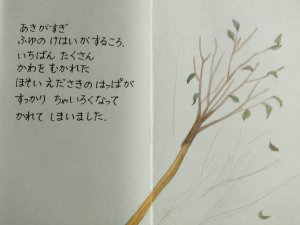 あきがすぎ
ふゆの けはいがするころ、
いちばん たくさん
かわを むかれた
ほそい えださきの はっぱが
すっかり ちゃいろくなって
かれて しまいました。